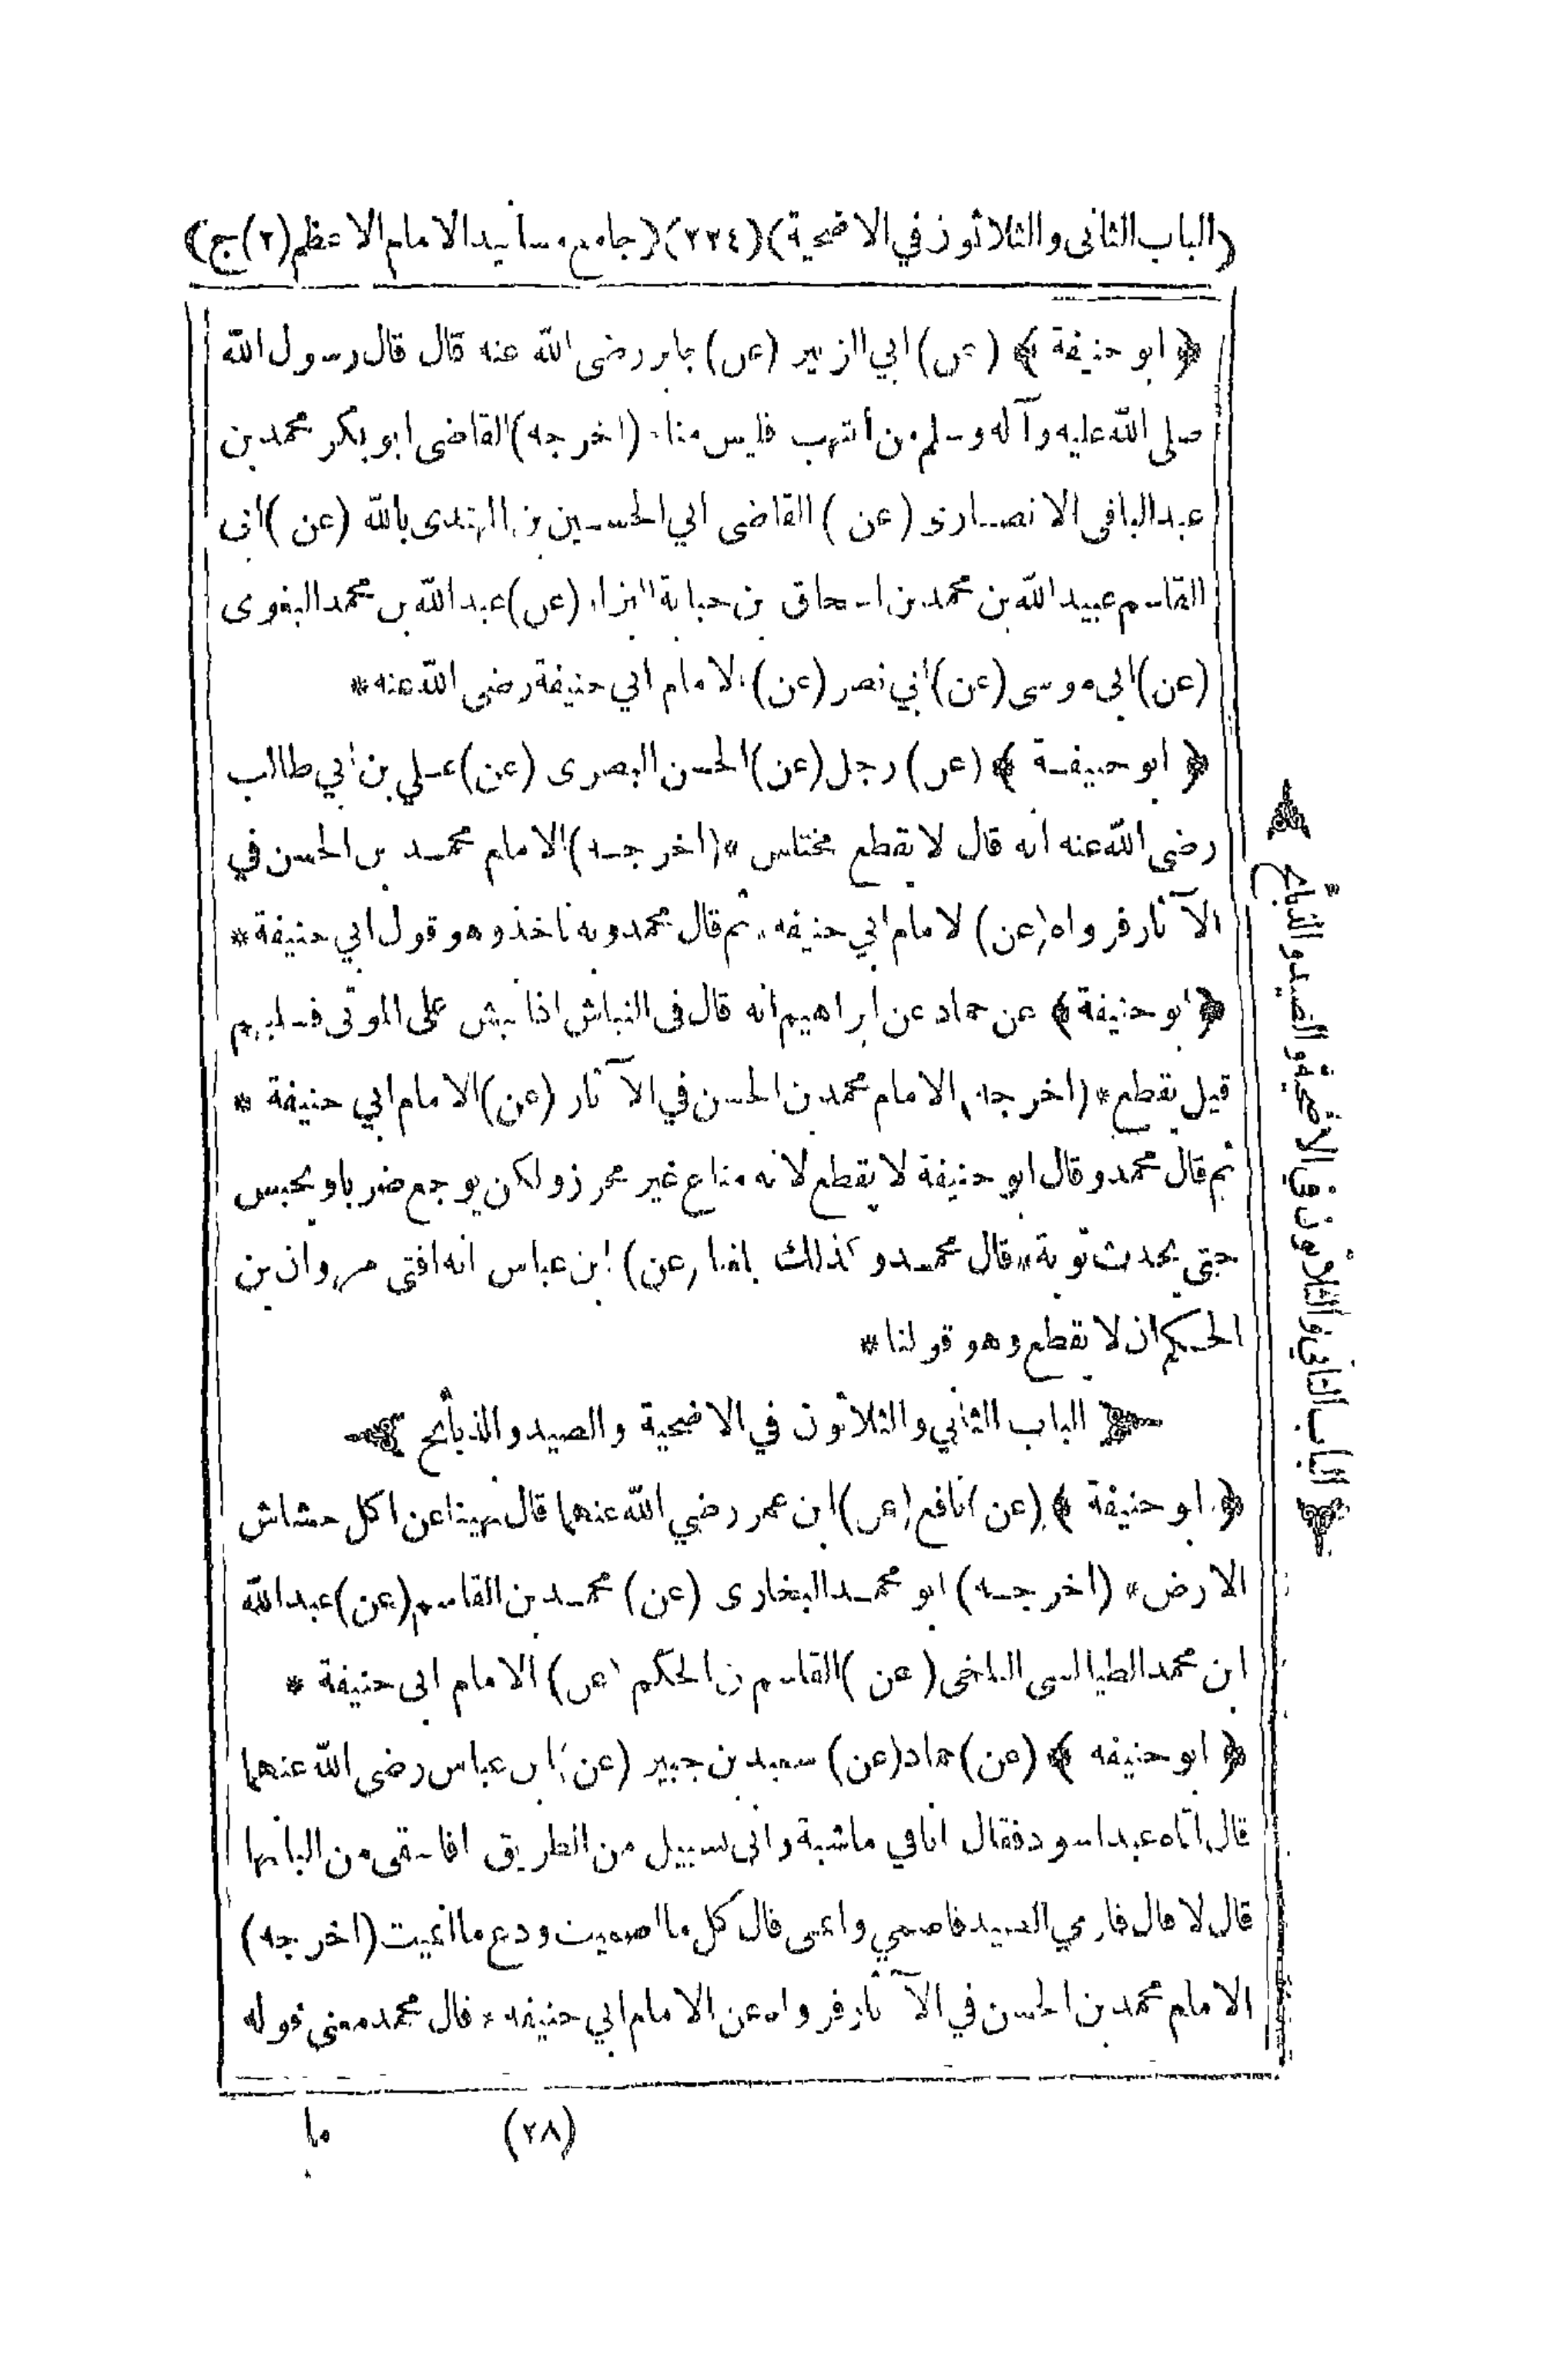 (الباب الثانى والثلاثون في الاضحية) (٢٢٤) (جامع مسانيد الامام الاعظم (٢) ج)
﴿ ابو حنيفة ﴾ (عن) ابي الزبير (عن) جابر رضى الله عنه قال قال رسول الله
صلى الله عليه وآله وسلم من أنتهب فليس منا * (اخرجه) القاضى ابو بكر محمد بن
عبد الباقى الانصارى (عن) القاضى ابي الحسين بن المهتدى بالله (عن) ابى
القاسم عبيد الله بن محمد بن اسحاق بن حبابة البزاز (عن) عبد الله بن محمد البغوى
(عن) ابى موسى (عن) أبي نصر (عن) الامام ابي حنيفة رضى الله عنه *
﴿ ابو حنيفة ﴾ (عن) رجل (عن) الحسن البصرى (عن) على بن ابي طالب
رضى الله عنه انه قال لا يقطع مختلس * (اخرجه) الامام محمد بن الحسن في
الآثار فرواه (عن) الامام ابي حنيفة * ثم قال محمد وبه ناخذ وهو قول ابي حنيفة *
﴿ ابو حنيفة ﴾ عن حماد عن ابراهيم انه قال فى النباش اذا نبش على الموتى فسلبهم
قيل يقطع * (اخرجه) الامام محمد بن الحسن في الآثار (عن) الامام ابي حنيفة *
ثم قال محمد وقال ابو حنيفة لا يقطع لانه متاع غير محرز ولكن يوجع ضربا ويحبس
حتى يحدث توبة * قال محمد وكذلك بلغنا (عن) ابن عباس انه افتى مروان بن
الحكم ان لا يقطع وهو قولنا *
الباب الثاني والثلاثون في الاضحية والصيد والذبأئح
﴿ ابو حنيفة ﴾ (عن) نافع (عن) ابن عمر رضي الله عنهما قال نهينا عن اكل حشاش
الارض * (اخرجه) ابو محمد البخارى (عن) محمد بن القاسم (عن) عبد الله
ابن محمد الطيالسى البلخى (عن) القاسم بن الحكم (عن) الامام ابى حنيفة *
﴿ ابو حنيفه ﴾ (عن) حماد (عن) سعيد بن جبير (عن) ابن عباس رضى الله عنهما
قال اتاه عبد اسود فقال انا في ماشية وانى لسبيل من الطريق افاسقى من البانها
قال لا قال فارمي الصيد فاصمي وانمى قال كل ما اصميت ودع ما انميت (اخرجه)
الامام محمد بن الحسن في الآثار فرواه عن الامام ابي حنيفه * قال محمد معنى قوله
(٢٨)
ما
الباب الثاني والثلاثون في الاضحية والصيد والذبأئح